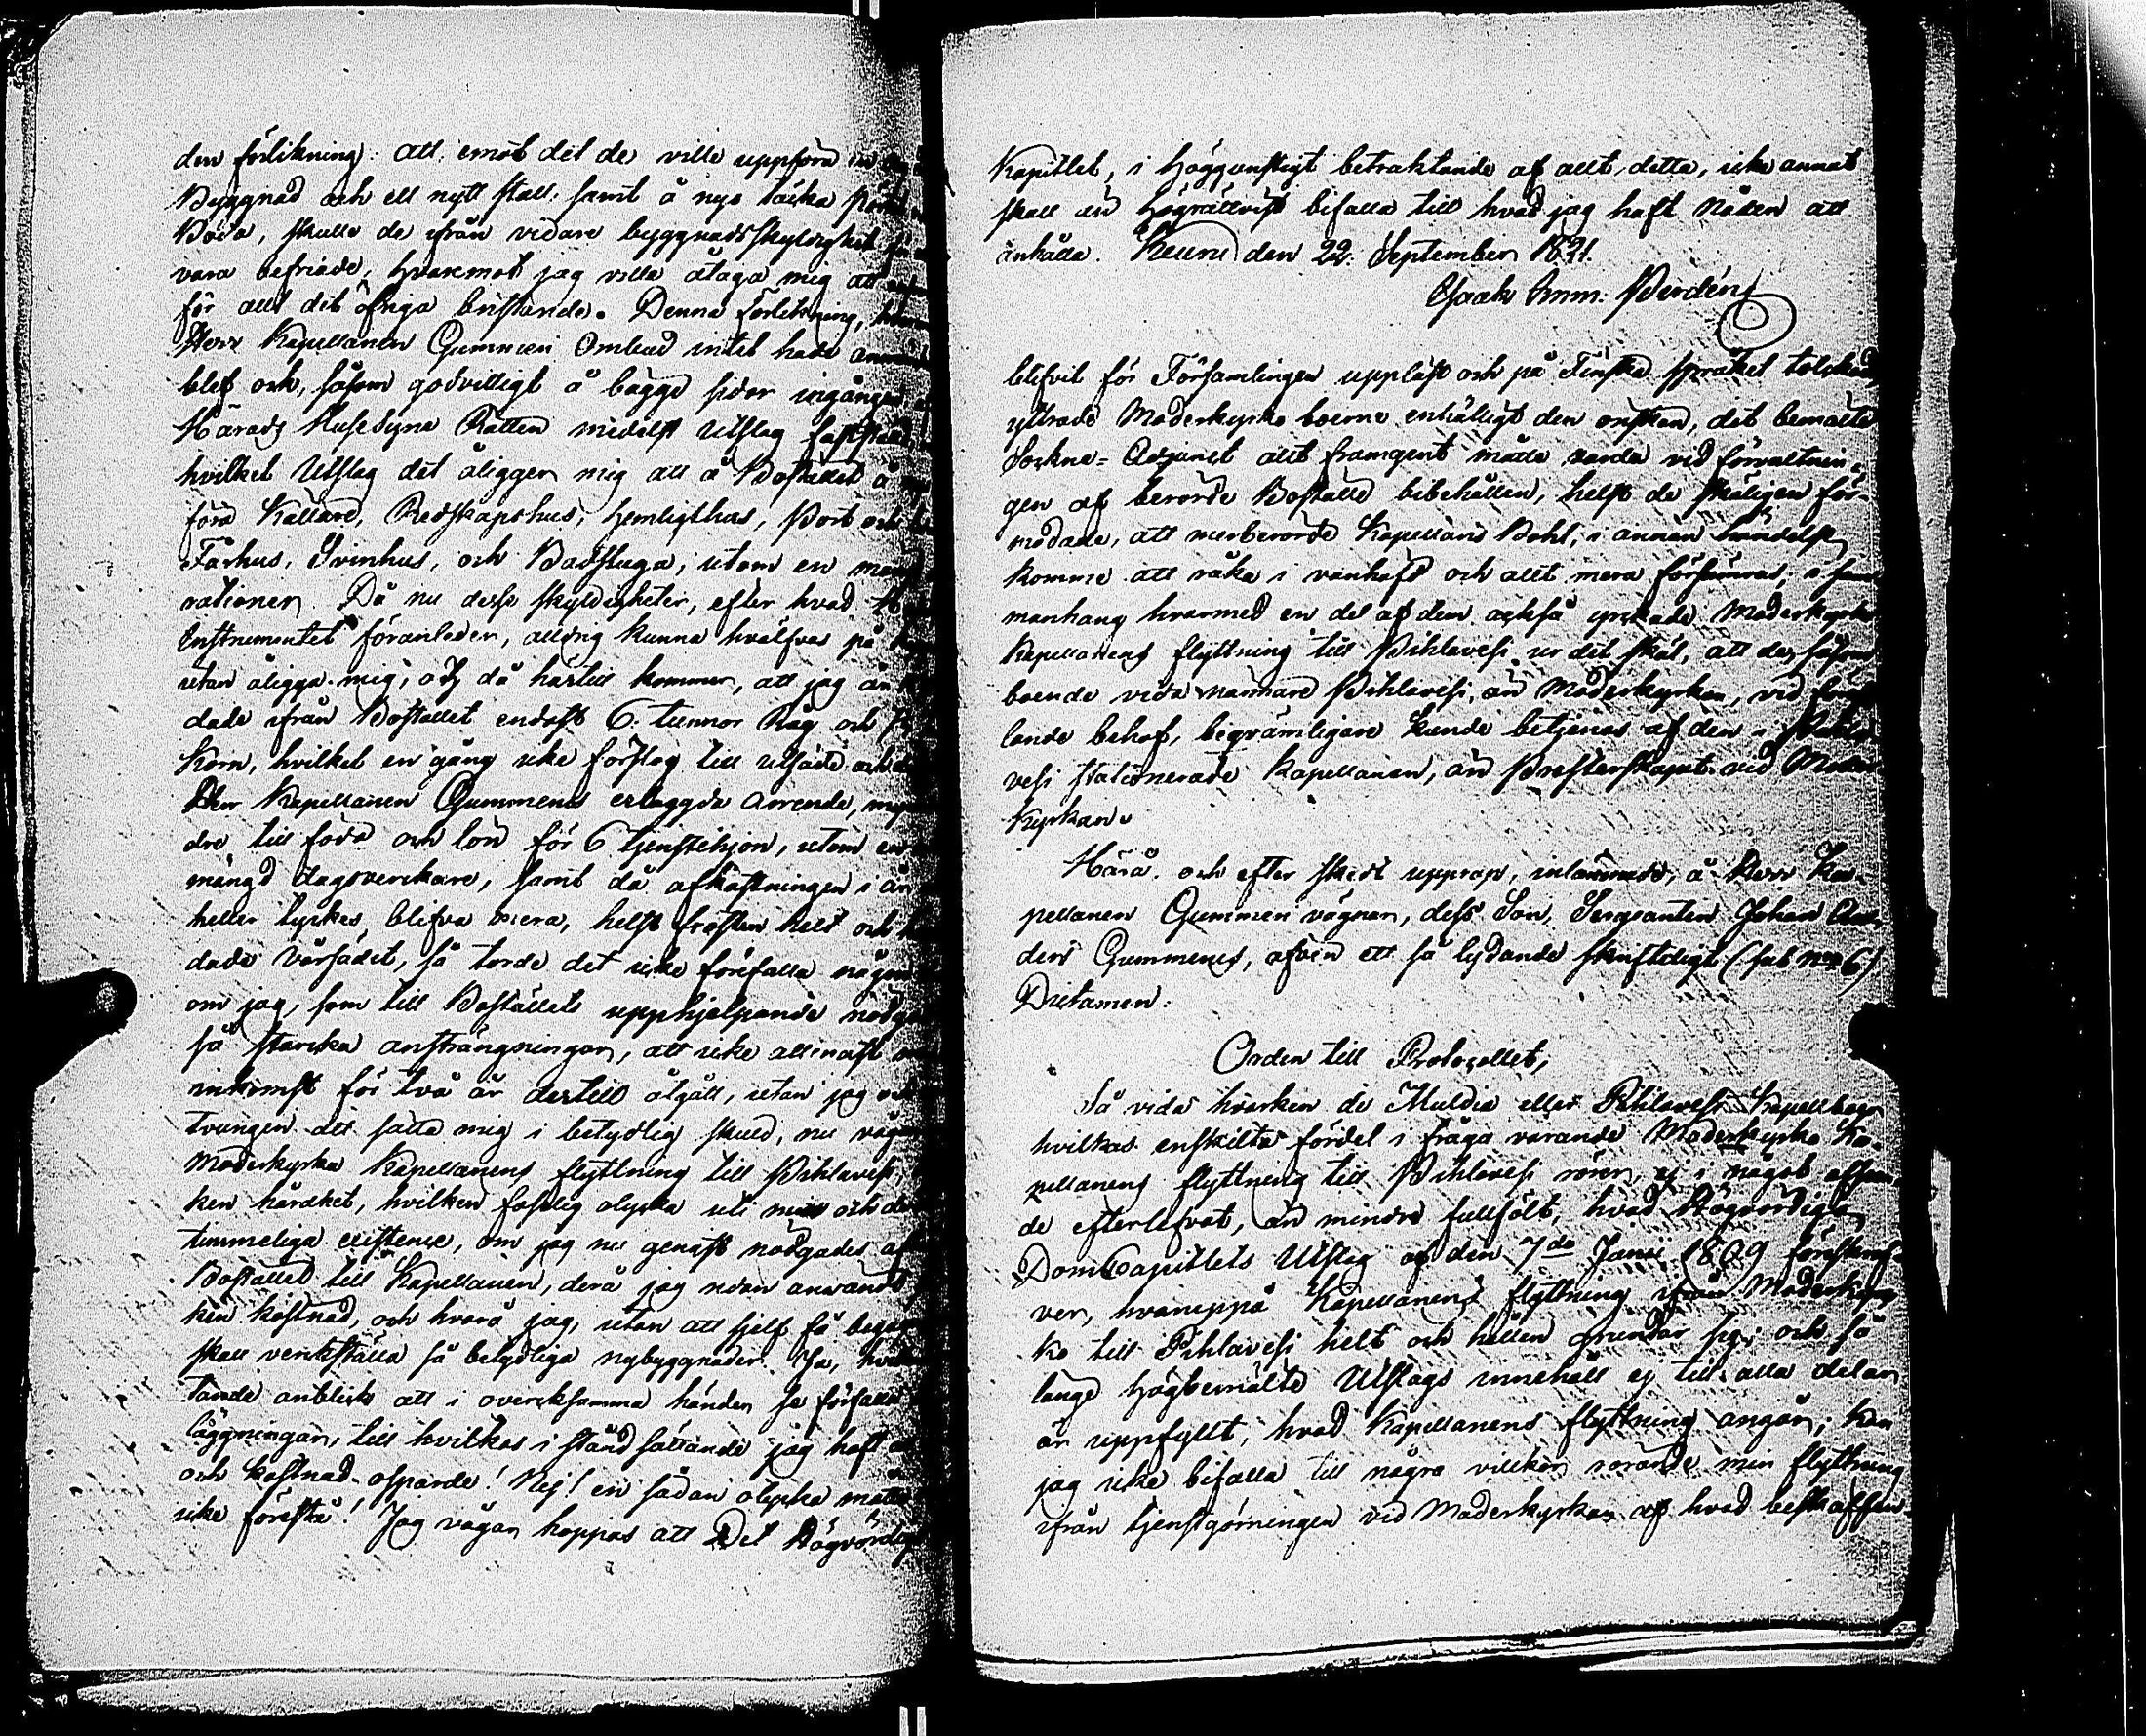 den förlikning: att, emot det de ville uppföra en
Byggnad och ett nytt stall, samt å nyo täcka
Boda, skulle de ifrån vidare byggnadsskyldighet
vara befriade, hvaremot jag ville åtaga mig att
för allt det öfriga bristande. Denna Förlikning,
Herr Kapellanen Gummeri Ombud intet hade
blef och, såsom godvilligt å bägge sidor ingången
Härads Husesyns Rätten medelst Utslag fastställd
hvilket Utslag det åligger mig att å Bostället å
föra Källare, Redskapshus, Hemligthus, Port och
Fårhus, Svinhus, och Badstuga, utom en
rationer. Då nu dessa skyldigheter, efter hvad
Instrumentet föranleder, aldrig kunna hvälfvas på
utan åligga mig; och då härtill kommer, att jag
dade ifrån Bostället endast 6. tunnor Råg och
Korn, hvilket en gång icke förslog till utsäde och
Herr Kapellanen Gummerus erlaggda Arrende,
dre till föda och lön för 6 tjenstehjon, utom en
mängd dagsverkare, samt då afkastningen i år
heller lyckes blifva mera, helst frosten helt och
dade vårsädet, så torde det icke förefalla någon
om jag, som till Boställets upphjelpande
så starka ansträngningar, att icke allenast
inkomst för två år dertill åtgått, utan jag och
tvungen att sätta mig i betydlig skuld, nu
Moderkyrko Kapellanens flyttning till Pihlavesi,
ken hårdhet, hvilken olycka uti min och
timmeliga existence, om jag nu genast nödgades
Bostället till Kapellanen, derå jag redan användt
ken kostnad, och hvarå jag, utan att sjelf få
skall verkställa så betydliga nybyggnader. Ja,
tande anblick att i overksamma händer se
läggningar, till hvilkas i stånd sättande jag haft
och kostnad ospard! Nej! en sådan olycka
icke förestå! Jag vågar hoppas att Det Högvördiga
Kapitlet, i höggunstigt betraktande af allt detta, icke annat
skall än högrättvist bifalla till hvad jag haft nåden att
anhålla. Keuru den 22. September 1821.
Isaak Imm: Verdén
blifvit för Församlingen uppläst och på Finska språket tolckad
yttrade Moderkyrko boerne enhälligt den önskan, det bemälte
Sockne-Adjunct allt framgent måtte varda vid förvaltnin-
gen af berörde Boställe bibehållen, helst de skäligen för-
modade, att merberörde Kapellans Bohl, i annan händelse
komme att råka i vanhäfd och allt mera försämras, i sam
manhang hvarmed en del af dem också yrckade Moderkyrko
Kapellanens flyttning till Pihlavesi ur det skäl, att de, såsom
boende vida närmare Pihlavesi, än Moderkyrkan, vid
lande behof, beqvämligare kunde betjenas af den i Pihla-
vesi stationerade Kapellanen, än Presterskapet vid Moder
Kyrkan.
Härå, och efter skedt upprop, inlämnade, å Herr Ka-
pellanen Gummeri vägnar, dess Son, Sergeanten Johan An-
ders Gummerus, äfven ett så lydande skrifteligt (sub No 6)
Dictamen:
Orden till Protocollet,
Så vida hvarken de Muldia eller Pihlavesi Kapellboer
hvilkas enskilta fördel i fråga varande Moderkyrko Ka-
pellanens flyttning till Pihlavesi rörer, ej i något
de efterlefvat, än mindre fullföljt, hvad Högvördige
DomCapitlets Utslag af den 7de Junii 1809 föreskrif-
ver, hvaruppå Kapellanens flyttning ifrån Moderkyr
ko till Pihlavesi helt och hållen grundar sig; och så
länge högbemälte Utslags innehåll ej till alla delar
är uppfyllt, hvad Kapellanens flyttning angår; kan
jag icke bifalla till några villkor rörande min flyttning
ifrån tjenstgörningen vid Moderkyrkan af hvad beskaffen-